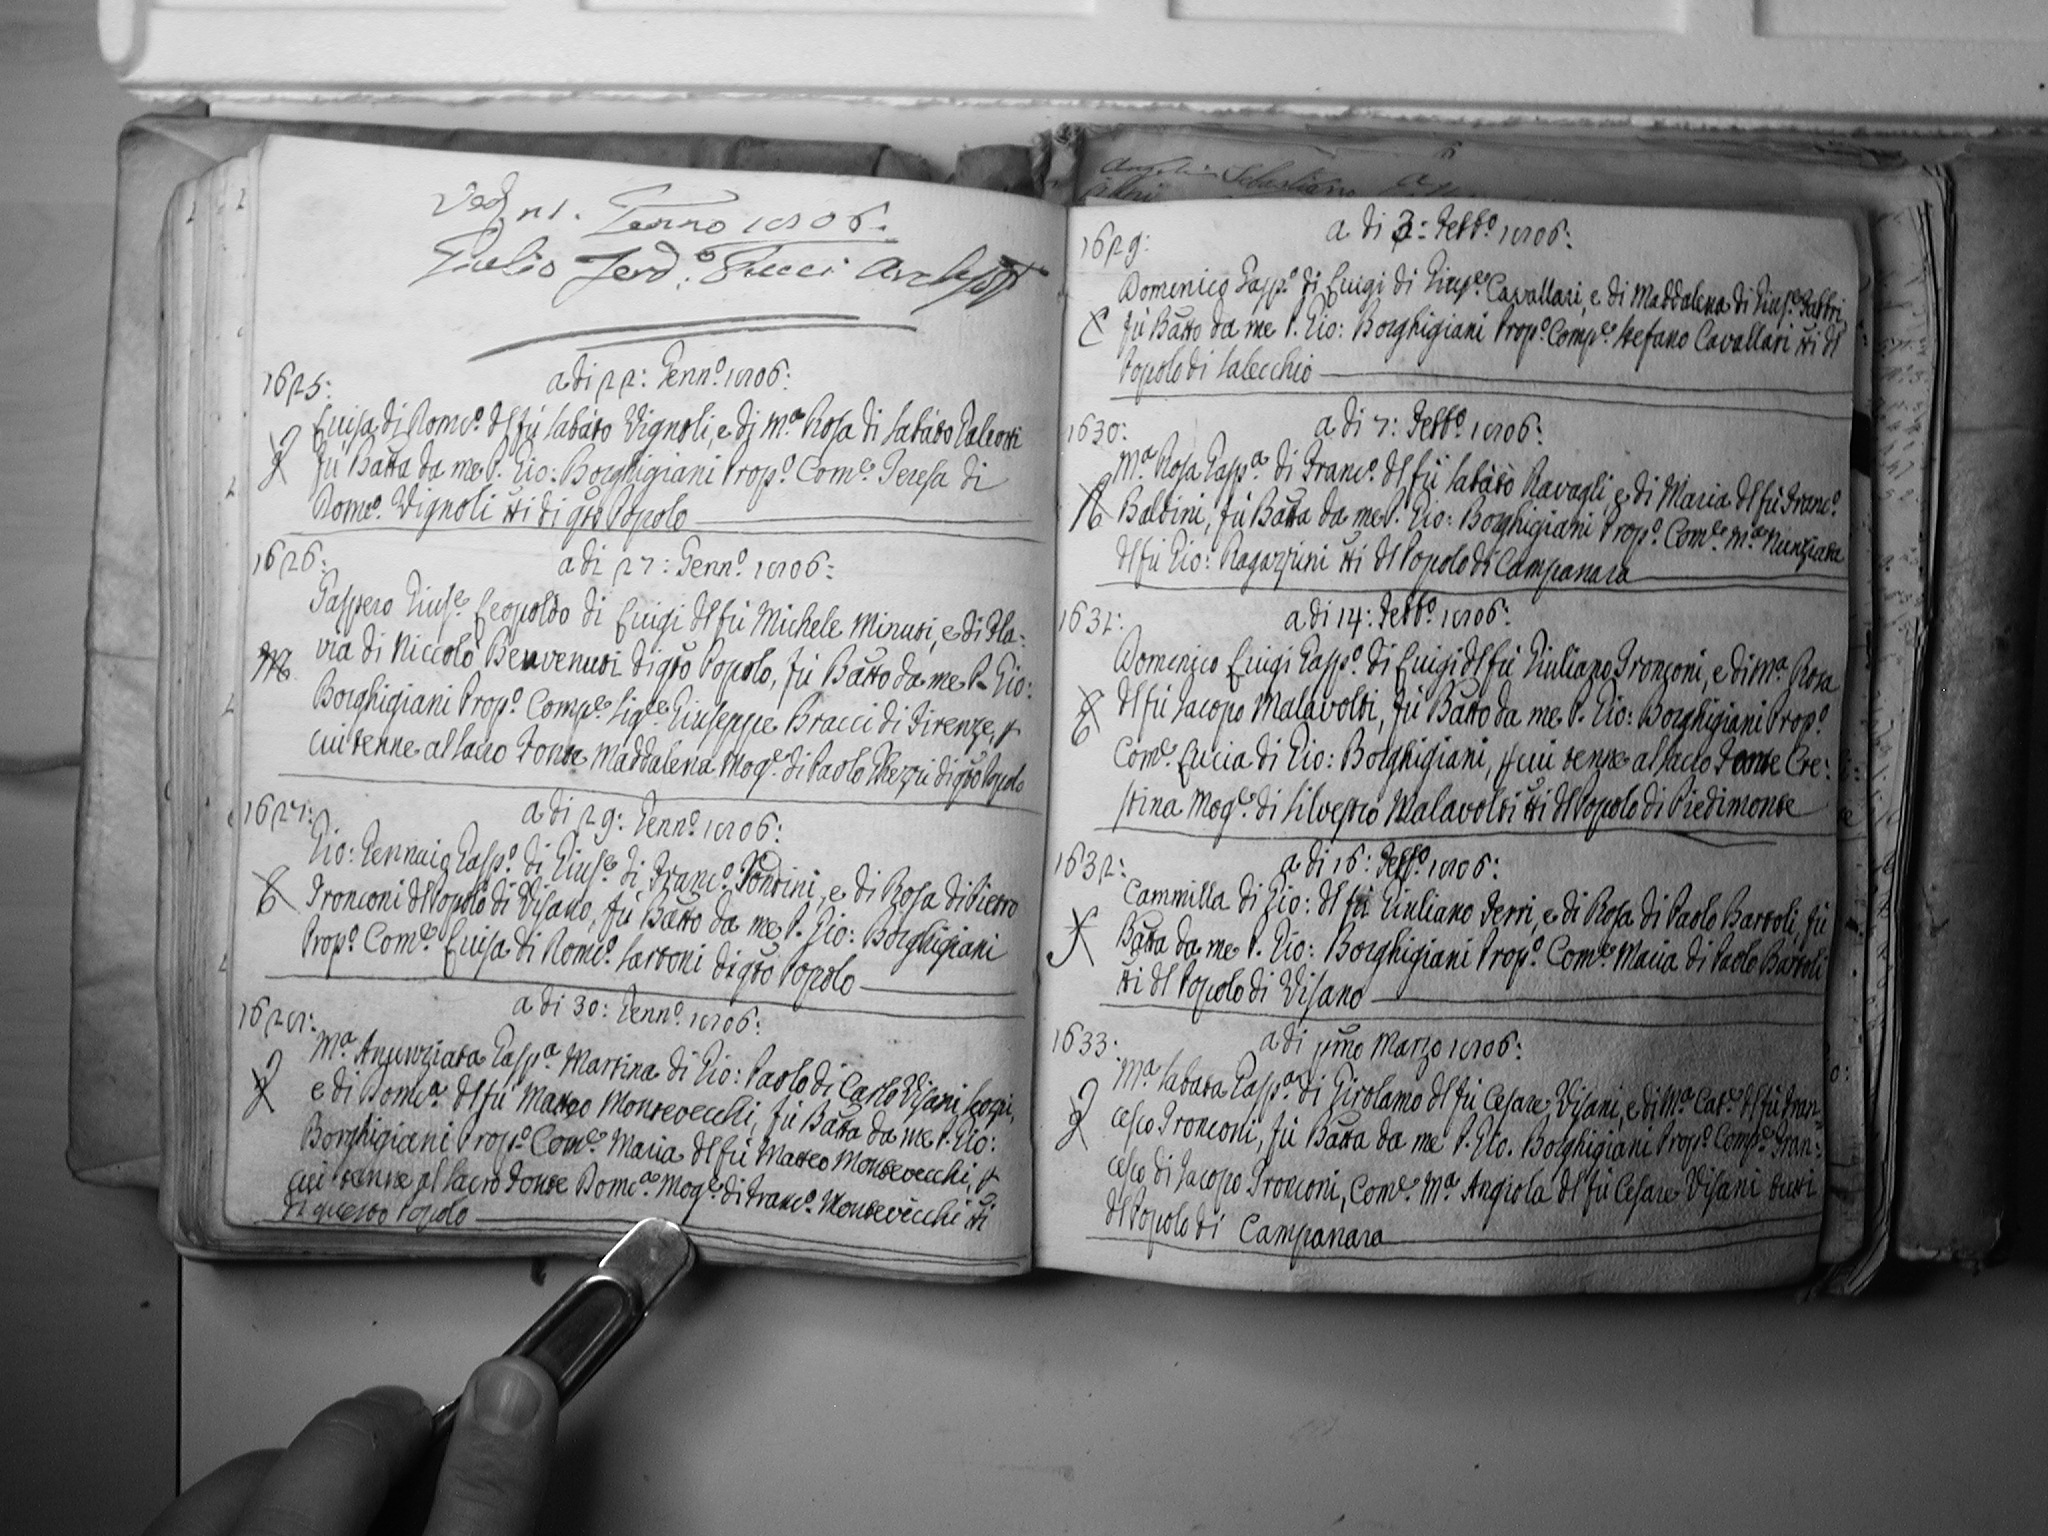 Genno 1806.
Giulio Ferd.º Fucci
1625: a di 22: Genn.º 1806:
Luisa di Dom.co dl fù Sabato Vignoli, e di M.a Rosa di Sabato Galeotti
fù Batta da me P. Gio: Borghigiani Prop.º Com.e Teresa di
Dom.co Vignoli tti di qto Popolo
1626: a di 27: Genn.º 1806:
Gaspero Gius.e Leopoldo di Luigi dl fù Michele Minuti, e di Fla-
via di Niccolò Benvenuti di qto Popolo, fù Batto da me P. Gio:
Borghigiani Prop.º Comp.e Sig.re Giuseppe Bracci di Firenze, p
cui tenne al sacro Fonte Maddalena Mog.e di Paolo Ghezzi di qto Popolo
1627: a di 29: Genn.º 1806:
Gio: Gennaio Gasp.º di Gius.e di Franc.º Pondini, e di Rosa di Pietro
Tronconi dl Popolo di Visano, fù Batto da me P. Gio: Borghigiani
Prop.º Com.e Luisa di Dom.co Sartoni di qto Popolo
1628: a di 30: Genn.º 1806:
M.a Anunziata Gasp.a Martina di Gio: Paolo di Carlo Visani Scozzi,
e di Dom.ca dl fù Matteo Montevecchi, fù Batta da me P. Gio:
Borghigiani Prop.º Com.e Maria dl fù Matteo Montevecchi, p
cui tenne al sacro Fonte Dom.ca Mog.e di Franc.º Montevecchi tti
di questo Popolo
1629: a di 3: Febb.º 1806:
Domenico Gasp.º di Luigi di Gius.e Cavallari, e di Maddalena di Gius.e Fabbri,
fù Batto da me P. Gio: Borghigiani Prop.º Comp.e Stefano Cavallari tti dl
Popolo di Salecchio
1630: a di 7: Febb.º 1806:
M.a Rosa Gasp.a di Franc.º dl fù Sabato Ravagli, e di Maria dl fù Franc.º
Baldini, fù Batta da me P. Gio: Borghigiani Prop.º Com.e M.a Nunziata
dl fù Gio: Ragazzini tti dl Popolo di Campanara
1631: a di 14: Febb.º 1806:
Domenico Luigi Gasp.º di Luigi dl fù Giuliano Tronconi, e di M.a Rosa
dl fù Jacopo Malavolti, fù Batto da me P. Gio: Borghigiani Prop.º
Com.e Lucia di Gio: Borghigiani, p cui tenne al sacro Fonte Cre-
stina Mog.e di Silvestro Malavolti tti dl Popolo di Piedimonte
1632: a di 16: Febb.º 1806:
Cammilla di Gio: dl fù Giuliano Ferri, e di Rosa di Paolo Bartoli, fù
Batta da me P. Gio: Borghigiani Prop.º Com.e Maria di Paolo Bartoli
tti dl Popolo di Visano
1633: a di pmo Marzo 1806:
M.a Sabata Gasp.a di Girolamo dl fù Cesare Visani, e di M.a Cat.a dl fù Fran-
cesco Tronconi, fù Batta da me P. Gio. Borghigiani Prop.º Comp.e Fran-
cesco di Jacopo Tronconi, Com.e M.a Angiola dl fù Cesare Visani tutti
dl Popolo di Campanara